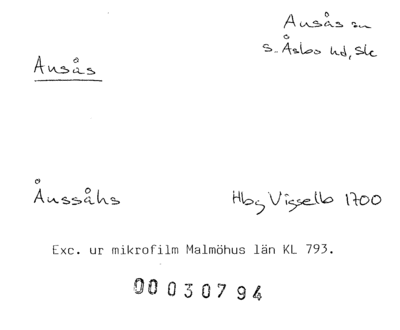 Ausås sn
S. Åsbo hd, Sk
Ausås
Åussåhs
Hbg Vigselb 1700
Exc. ur mikrofilm Malmöhus län KL 793.
00 030794